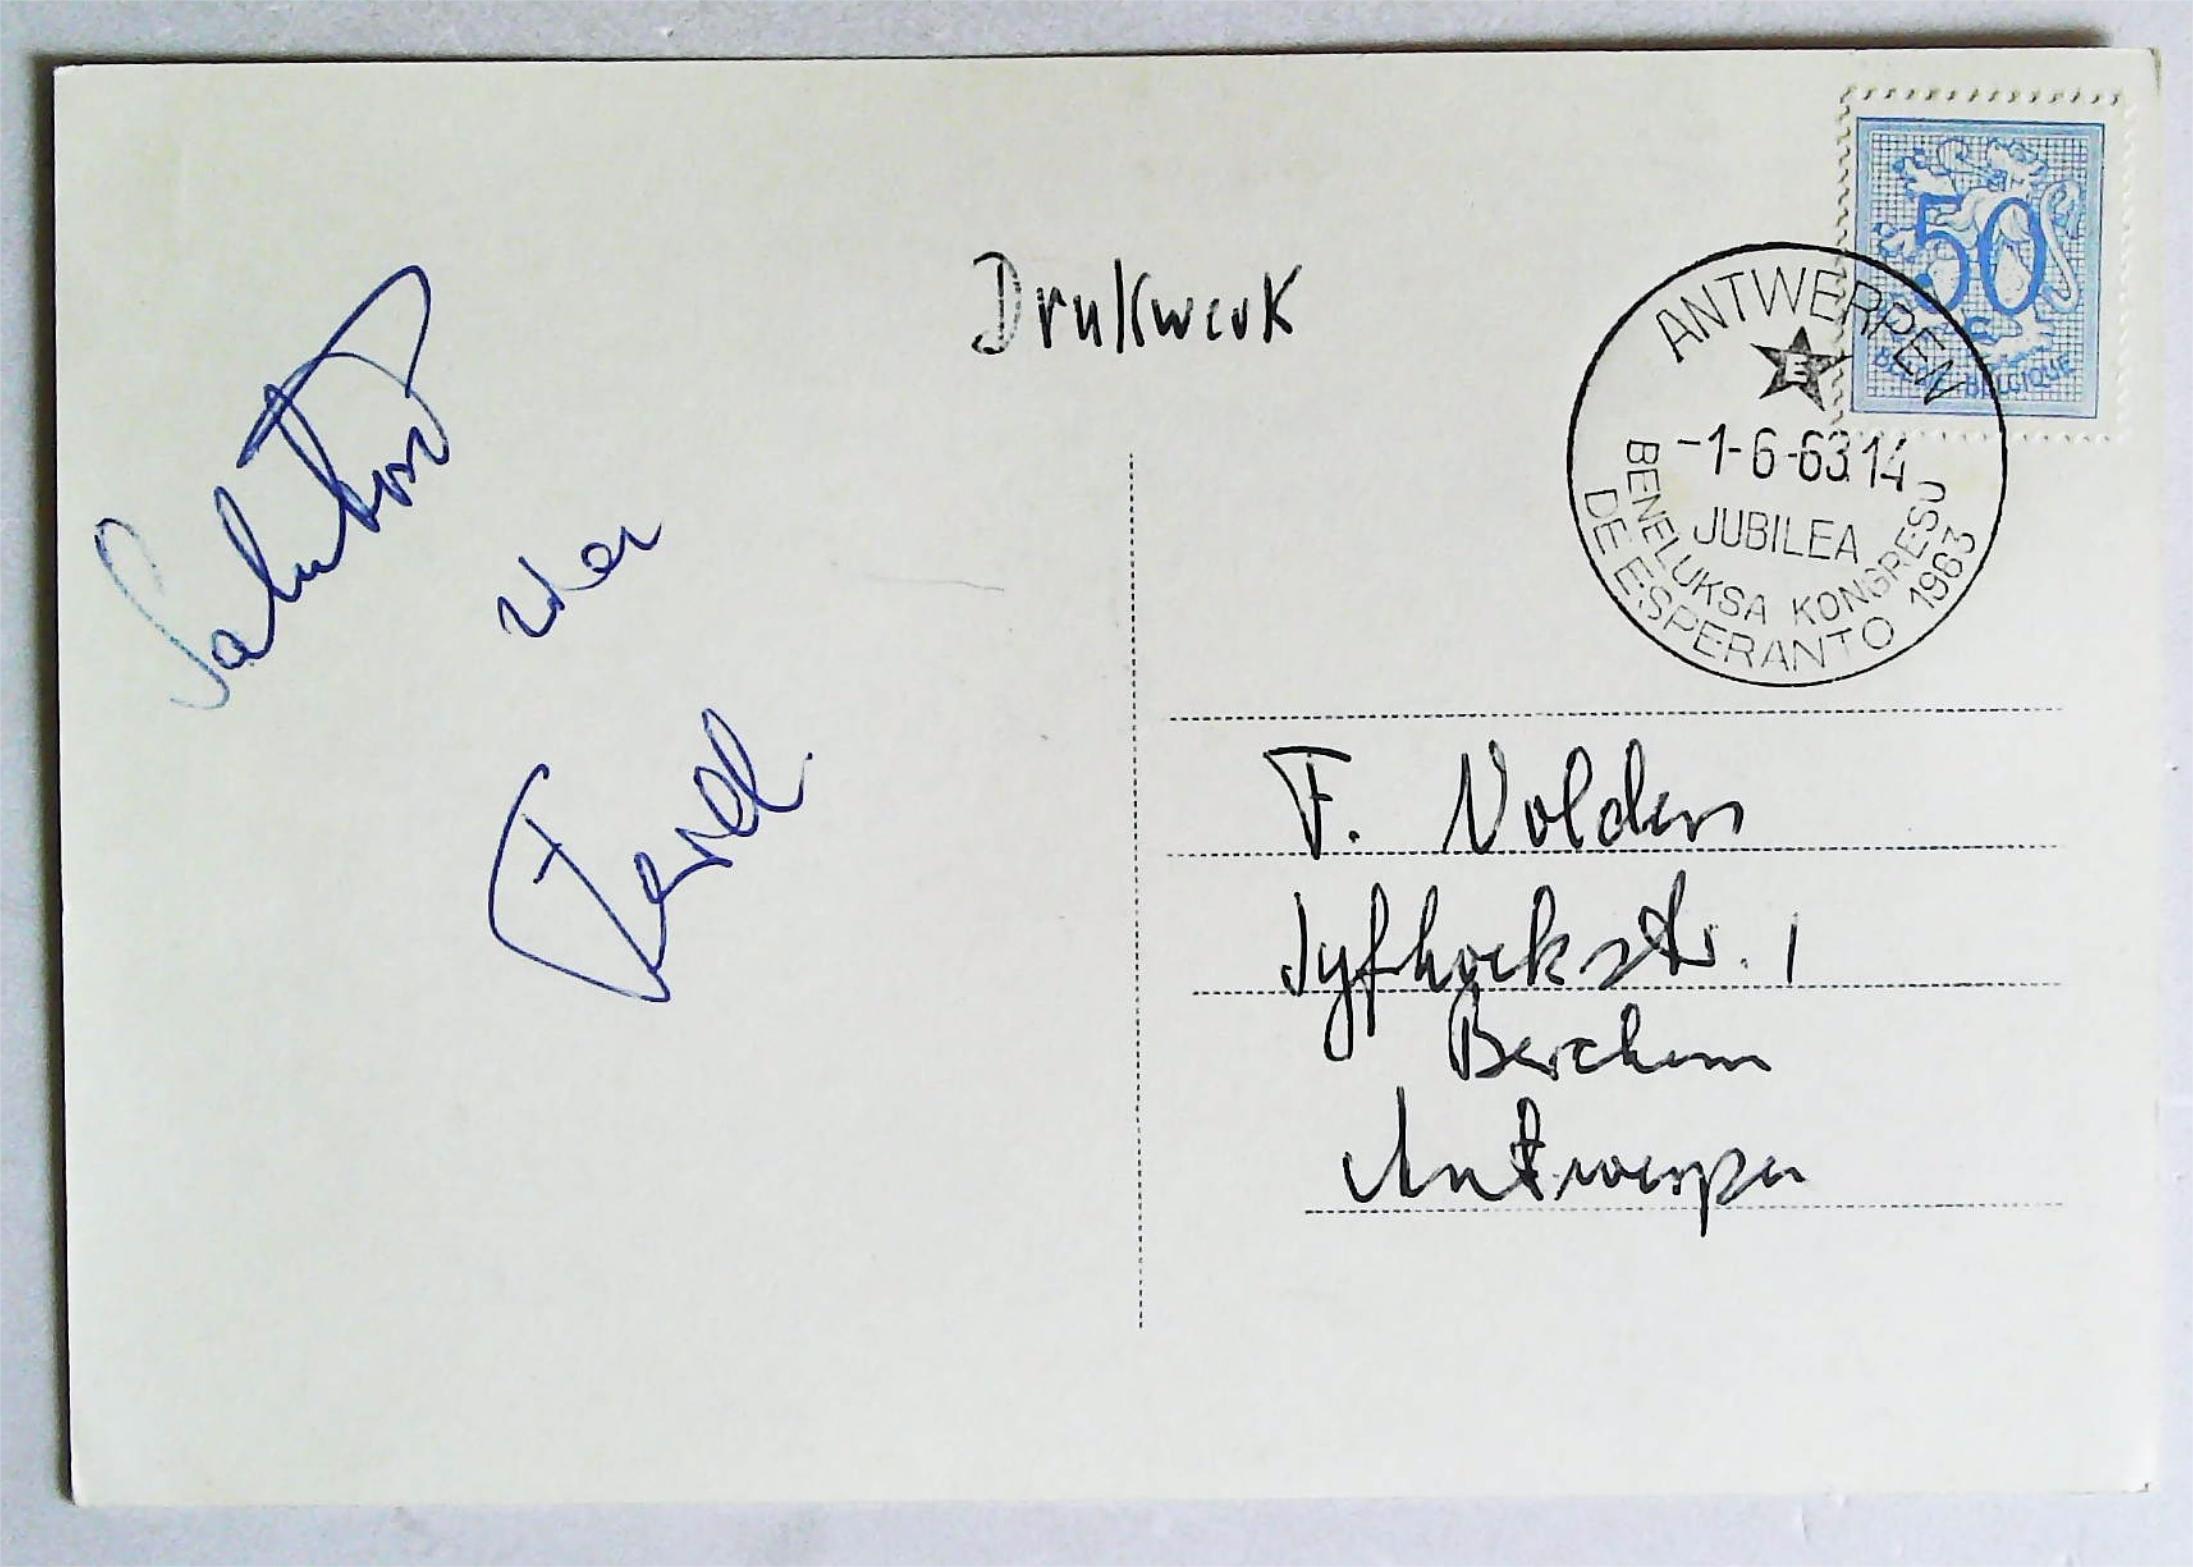 Drukwerk
50
BELGIE BELGIQUE
ANTWERPEN
E
-1-6-63 14
JUBILEA
BENELUKSA KONGRESU
DE ESPERANTO 1963
Ferd
F. Nolden
str. 1
Berchem
Antwerpen